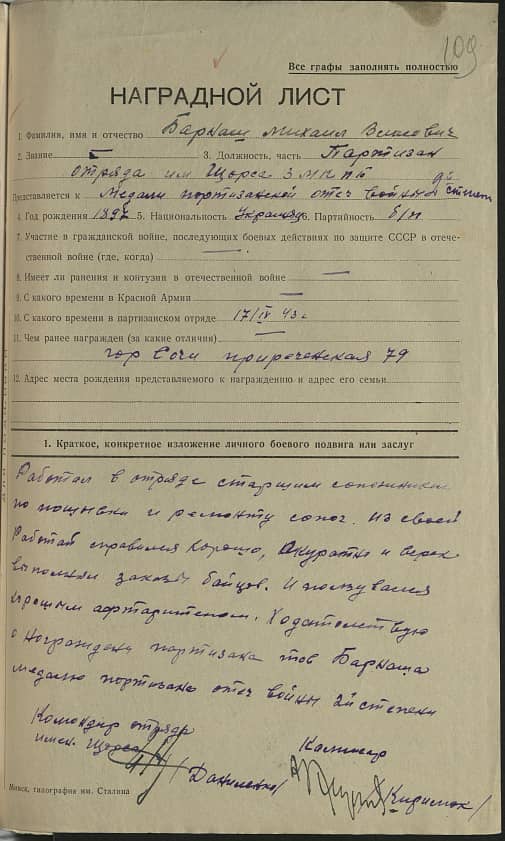 109
Все графы заполнять полностью
НАГРАДНОЙ ЛИСТ
1. Фамилия, имя и отчество Баркаш Михаил
2. Звание — 3. Должность, часть Партизан
отряда им Щорса 3 МП ПБ
Представляется к Медали партизанской отеч войны 2й степени
4. Год рождения 1897 5. Национальность Украинец 6. Партийность б/п
7. Участие в гражданской войне, последующих боевых действиях по защите СССР в отече-
ственной войне (где, когда) —
8. Имеет ли ранения и контузии в отечественной войне —
9. С какого времени в Красной Армии —
10. С какого времени в партизанском отряде 17/IV 43 г
11. Чем ранее награжден (за какие отличия) —
гор Сочи приреченская 79
12. Адрес места рождения представляемого к награждению и адрес его семьи
1. Краткое, конкретное изложение личного боевого подвига или заслуг
Работал в отряде старшим сапожником
по пошывки и ремонту сапог. Из своей
Работай справился хорошо, Акуратно и
выполнял заказы байцов. И ползувался
хорошым афтаритетом. Ходатольствую
о Награждени партизана тов Баркаша
медалю партизана отеч войны 2й степени
Командир отряда
имен. Щорса /Даниленко/
Комисар
Минск, типография им. Сталина